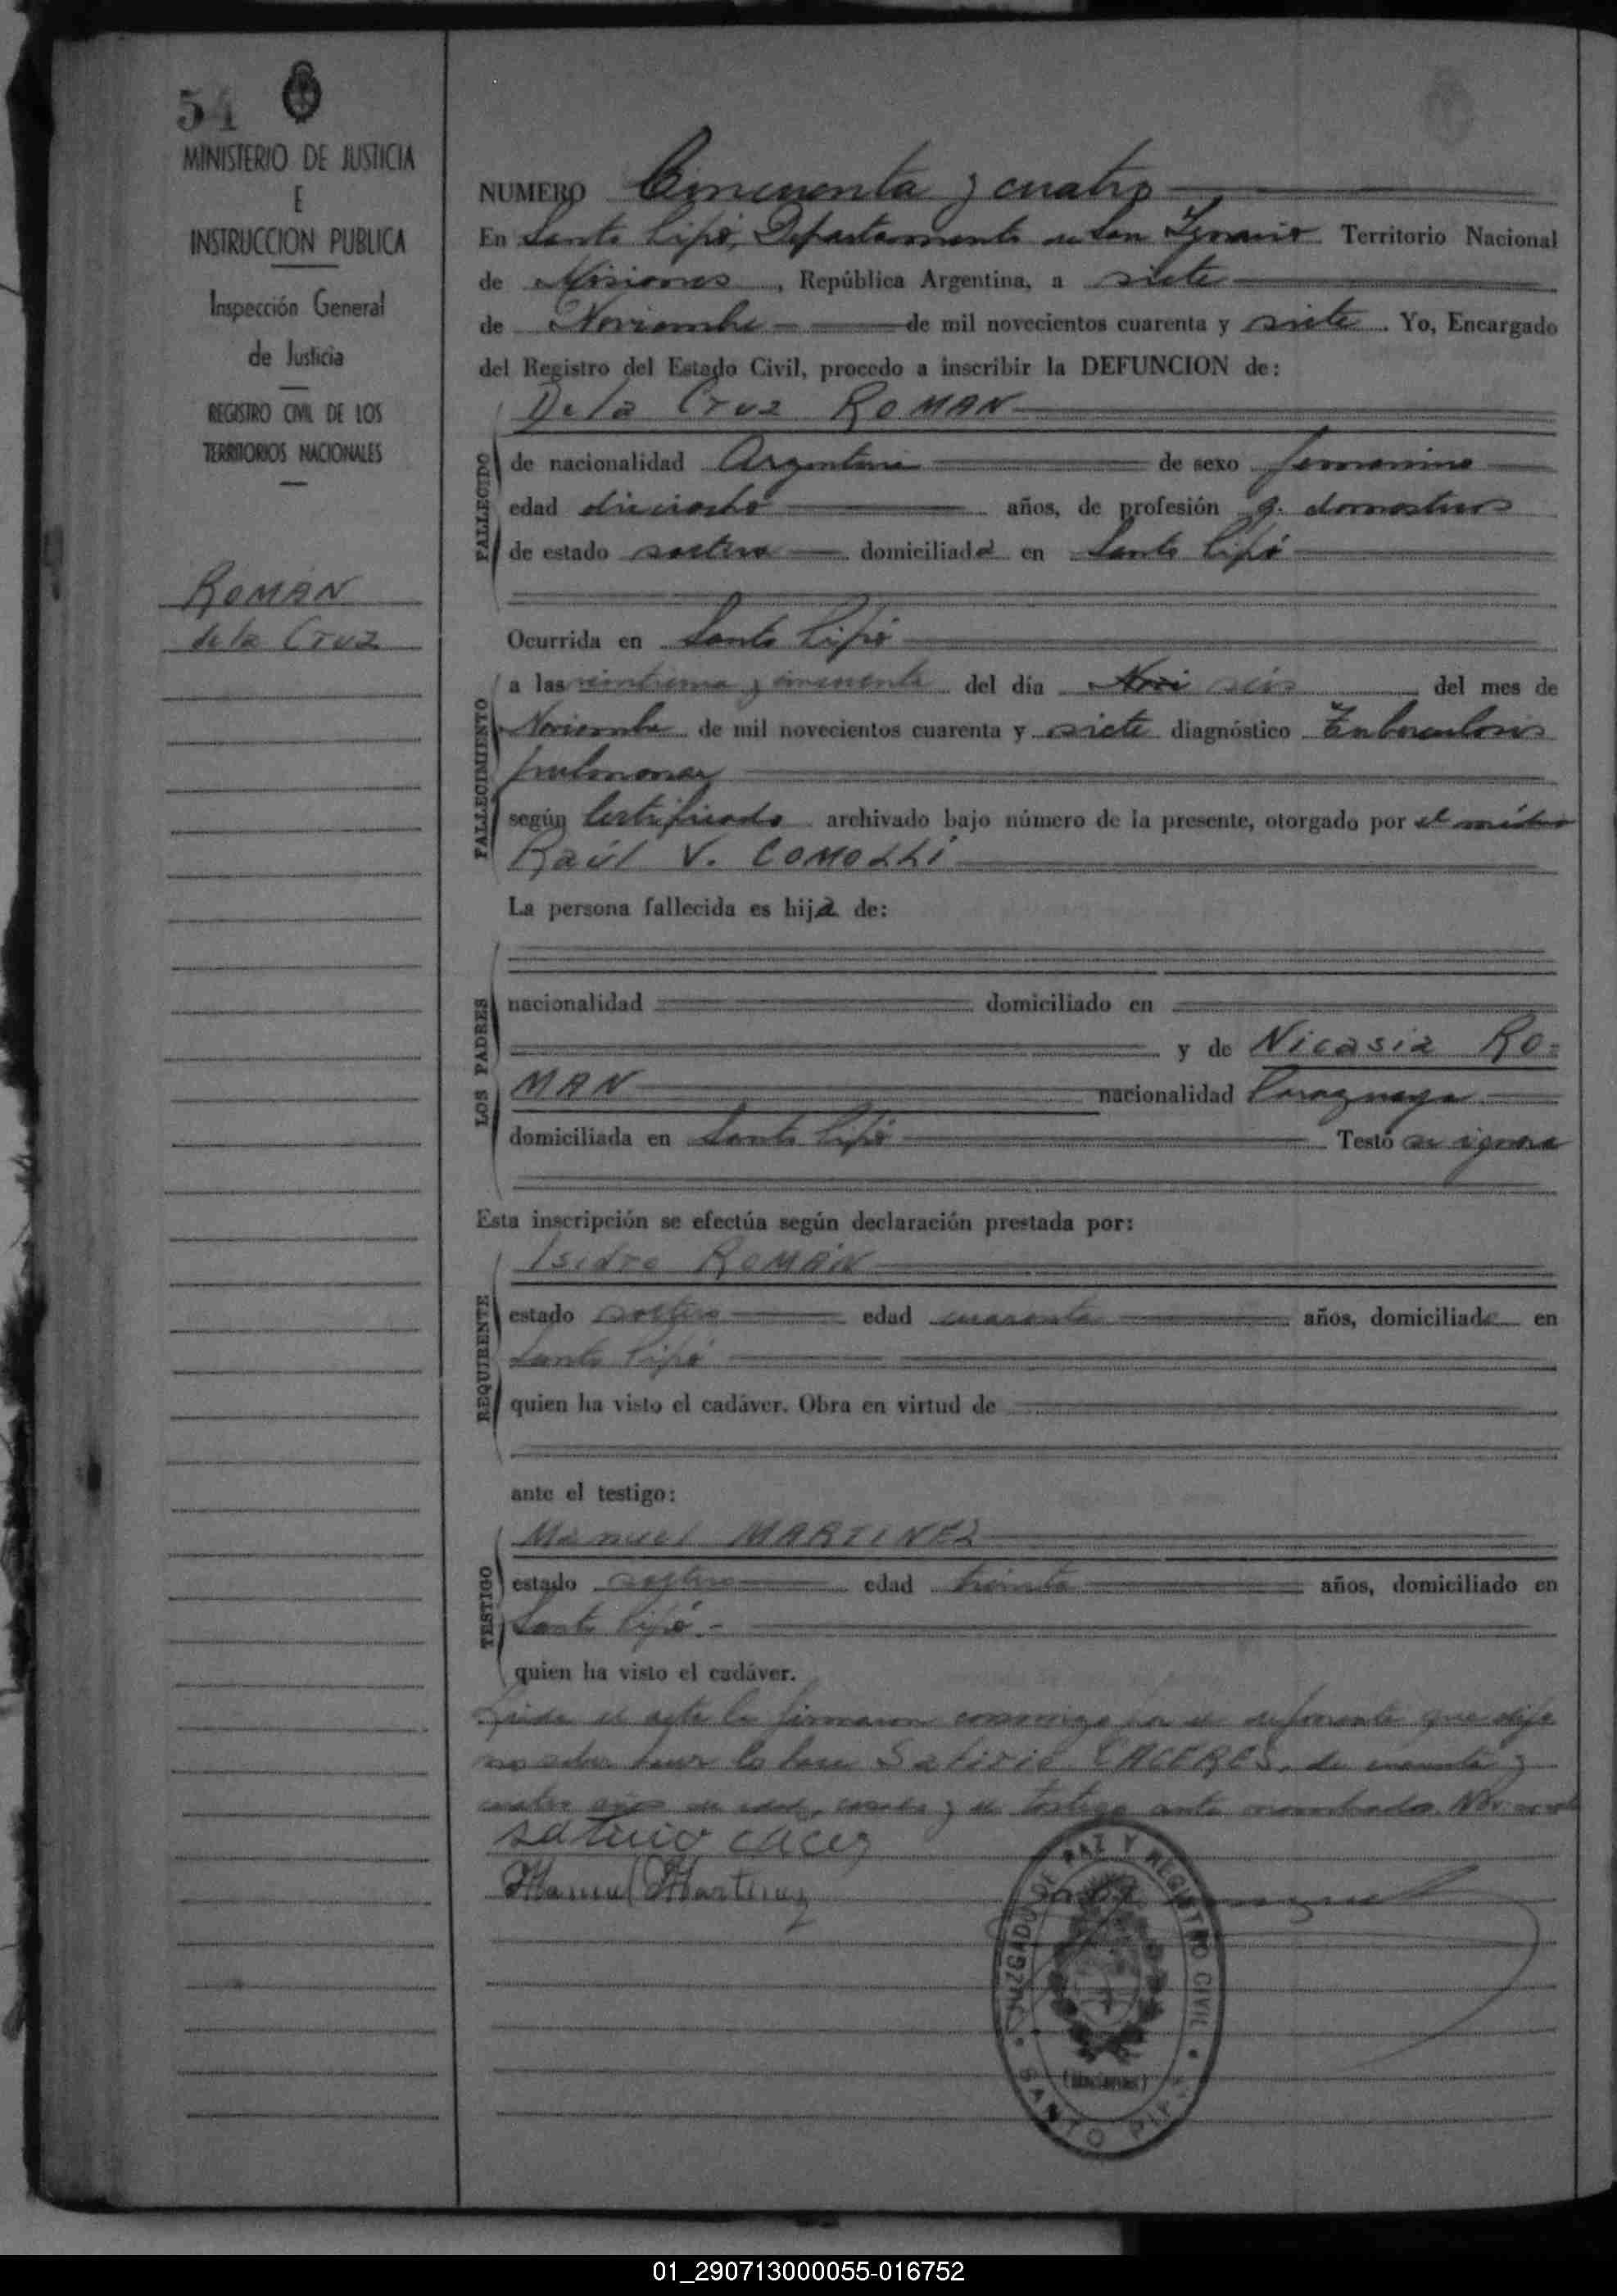 54
MINISTERIO DE JUSTICIA
E
INSTRUCCION PUBLICA
Inspección General
de Justicia
REGISTRO CIVIL DE LOS
TERRITORIOS NACIONALES
ROMAN
de la Cruz
NUMERO Cincuenta y cuatro
En Santo Pipó, Departamento de San Ignacio Territorio Nacional
de Misiones, República Argentina, a siete
de Noviembre de mil novecientos cuarenta y siete. Yo, Encargado
del Registro del Estado Civil, procedo a inscribir la DEFUNCION de:
De la Cruz ROMAN
FALLECIDO
de nacionalidad Argentina de sexo femenino
edad dieciocho años, de profesión q. domesticos
de estado soltera domiciliada en Santo Pipó
Ocurrida en Santo Pipó
FALLECIMIENTO
a las veintiuna y cincuenta del día seis del mes de
Noviembre de mil novecientos cuarenta y siete diagnóstico Tuberculosis
pulmonar
según Certificado archivado bajo número de la presente, otorgado por el médico
Raúl V. COMOLLI
La persona fallecida es hija de:
LOS PADRES
nacionalidad domiciliado en
y de Nicasia RO=
MAN nacionalidad Paraguaya
domiciliada en Santo Pipó Testó se ignora
Esta inscripción se efectúa según declaración prestada por:
REQUIRENTE
Isidro ROMAN
estado soltero edad cuarenta años, domiciliado en
Santo Pipó
quien ha visto el cadáver. Obra en virtud de
ante el testigo:
TESTIGO
Manuel MARTINEZ
estado soltero edad treinta años, domiciliado en
Santo Pipó.-
quien ha visto el cadáver.
Leida el acta la firmaron conmigo por el deponente que dijo
no saber hacer lo hace Satirio CACERES, de cuarenta y
cuatro años de edad, casado y el testigo ante nombrado.
satirio cacer
Manuel Martinez
JUZGADO DE PAZ Y REGISTRO CIVIL
(Misiones)
SANTO PIPÓ
01_290713000055-016752